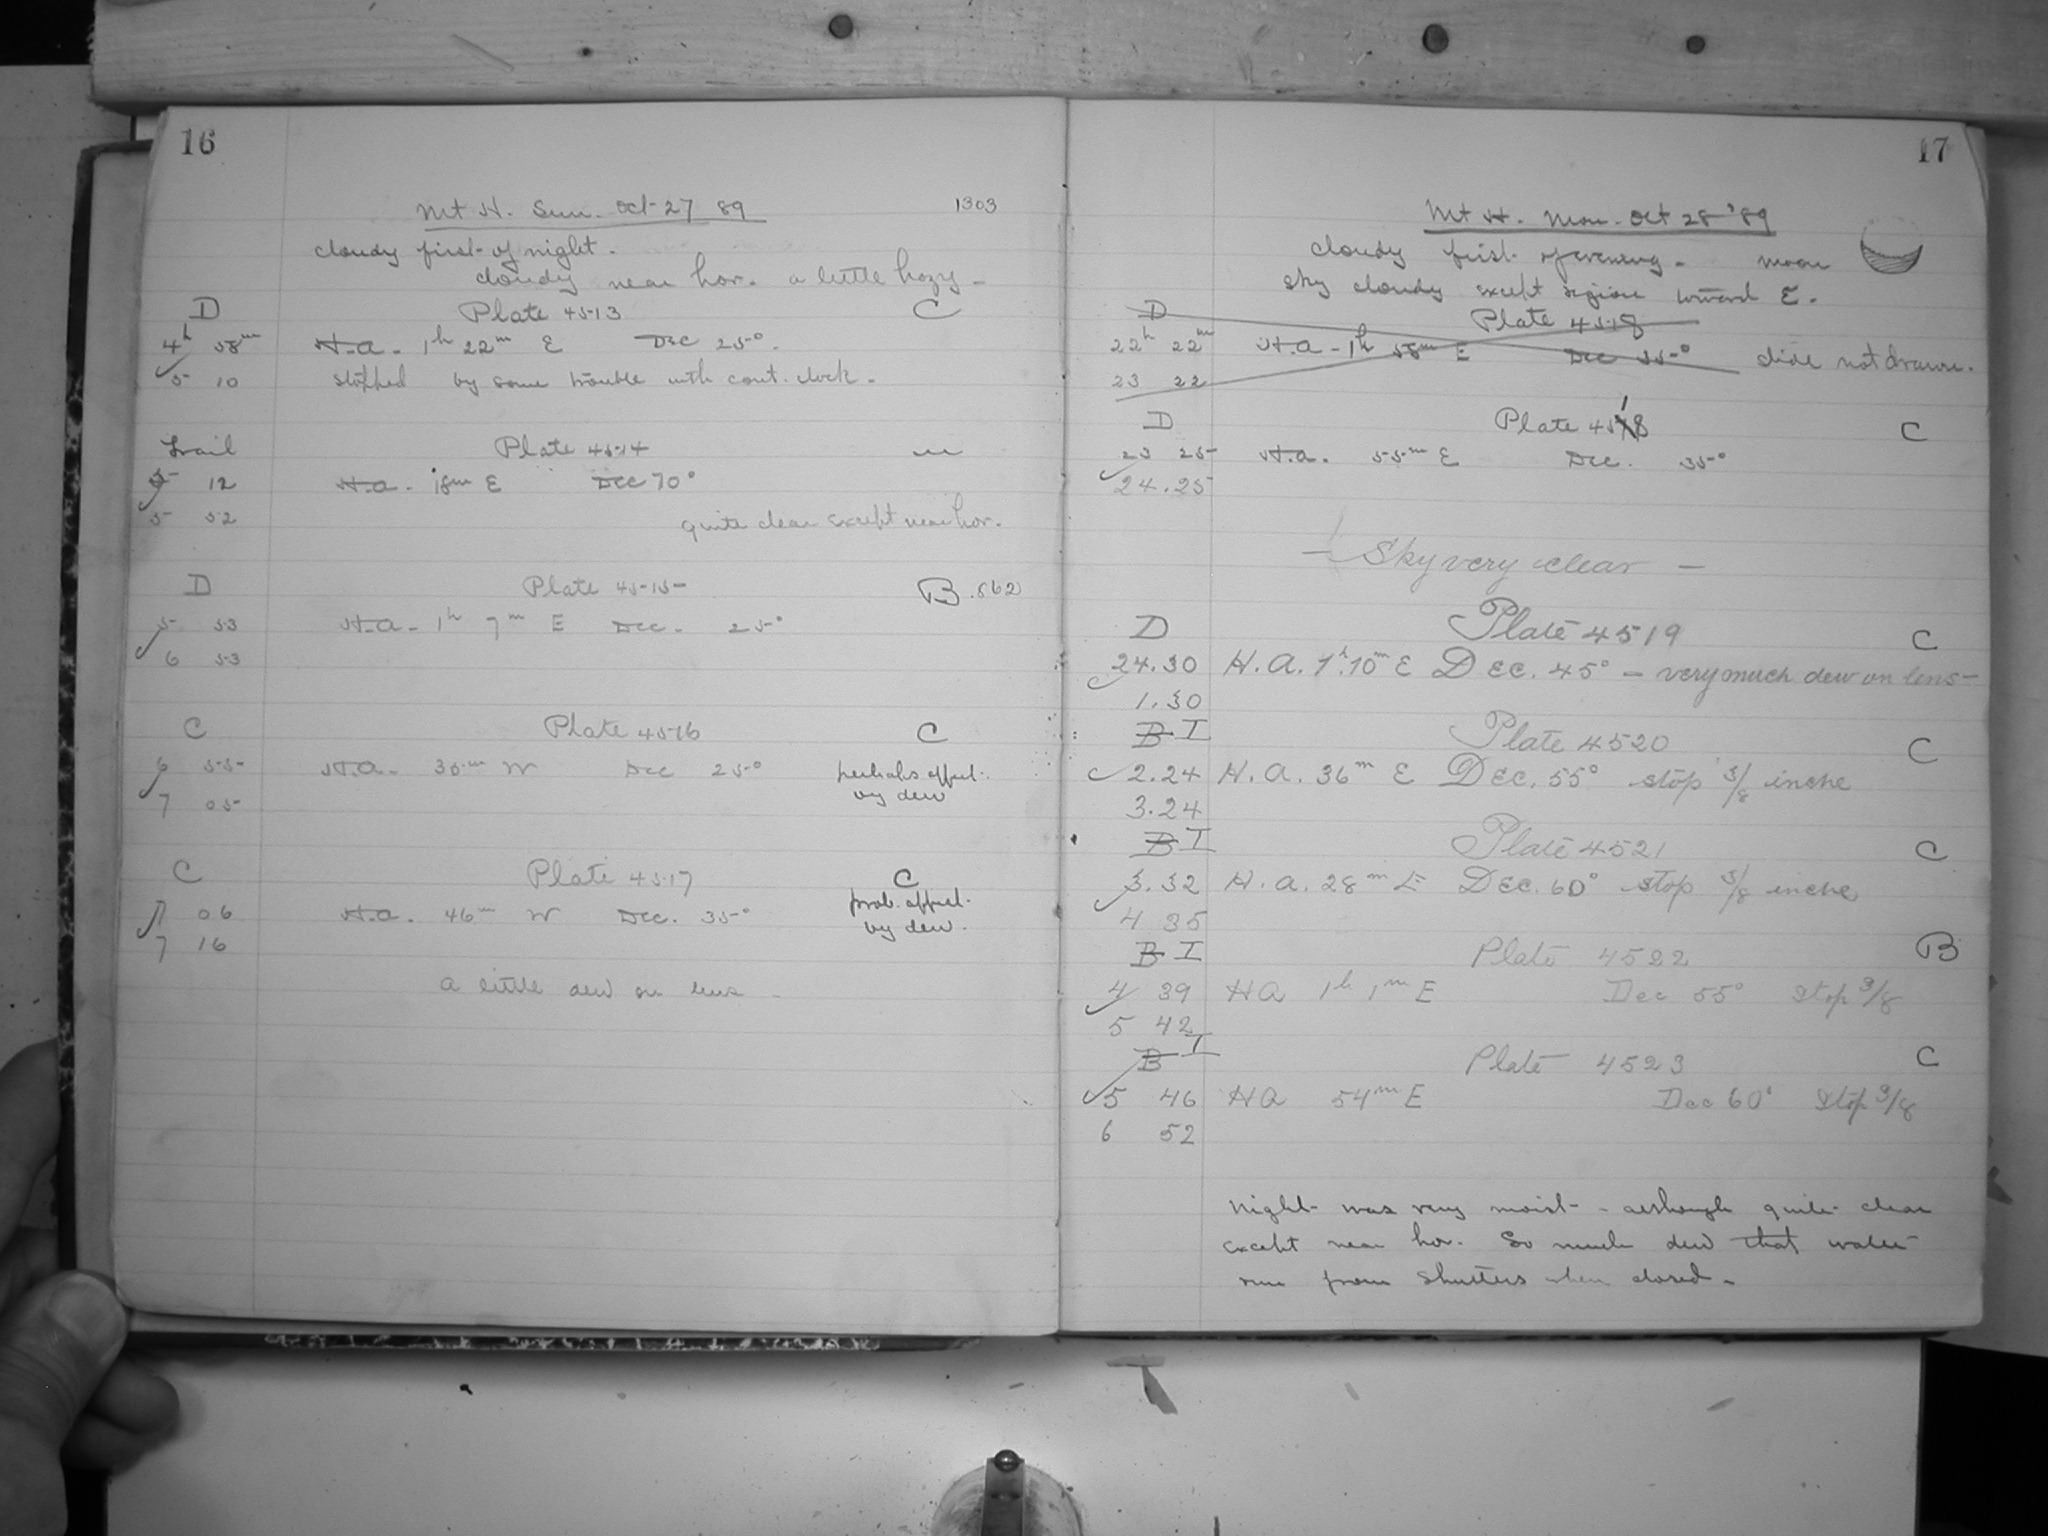 16
Mt H. Sun. Oct 27 89 1303
cloudy first of night.
cloudy near hor. a little hazy -
D Plate 4513 C
4h 58m H.A. 1h 22m E Dec 25°
5 10 stopped by some trouble with cont. clock.
Trail Plate 4514
5 12 H.A. 18m E Dec 70°
5 52 quite clear except near hor.
D Plate 4515 B .862
5 53 H.A. 1h 7m E Dec. 25°
6 53
C Plate 4516 C
6 55 H.A. 35m W Dec 25° perhaps affect.
7 05 by dew
C Plate 4517 C
7 06 H.A. 46m W Dec. 35° prob. affect.
7 16 by dew.
a little dew on lens
17
Mt H. Mon. Oct 28 '89
cloudy first of evening - moon
sky cloudy except region toward E.
D Plate 4518
22h 22m H.A. 1h 58m E Dec 35° slide not drawn.
23 22
D Plate 4518 C
23 25 H.A. 55m E Dec. 35°
24.25
- Sky very clear -
D Plate 4519 C
24.30 H.A. 1h.10m E Dec. 45° - very much dew on lens -
1.30
B I Plate 4520 C
2.24 H.A. 36m E Dec. 55° stop 3/8 inche
3.24
B I Plate 4521 C
3.32 H.A. 28m E Dec. 60° stop 3/8 inche
4 35
B I Plate 4522 B
4 39 HA 1h 1m E Dec 55° Stop 3/8
5 42
B I Plate 4523 C
5 46 HA 54m E Dec 60° Stop 3/8
6 52
Night was very moist - although quite clear
except near hor. So much dew that water
run from shutters when closed -